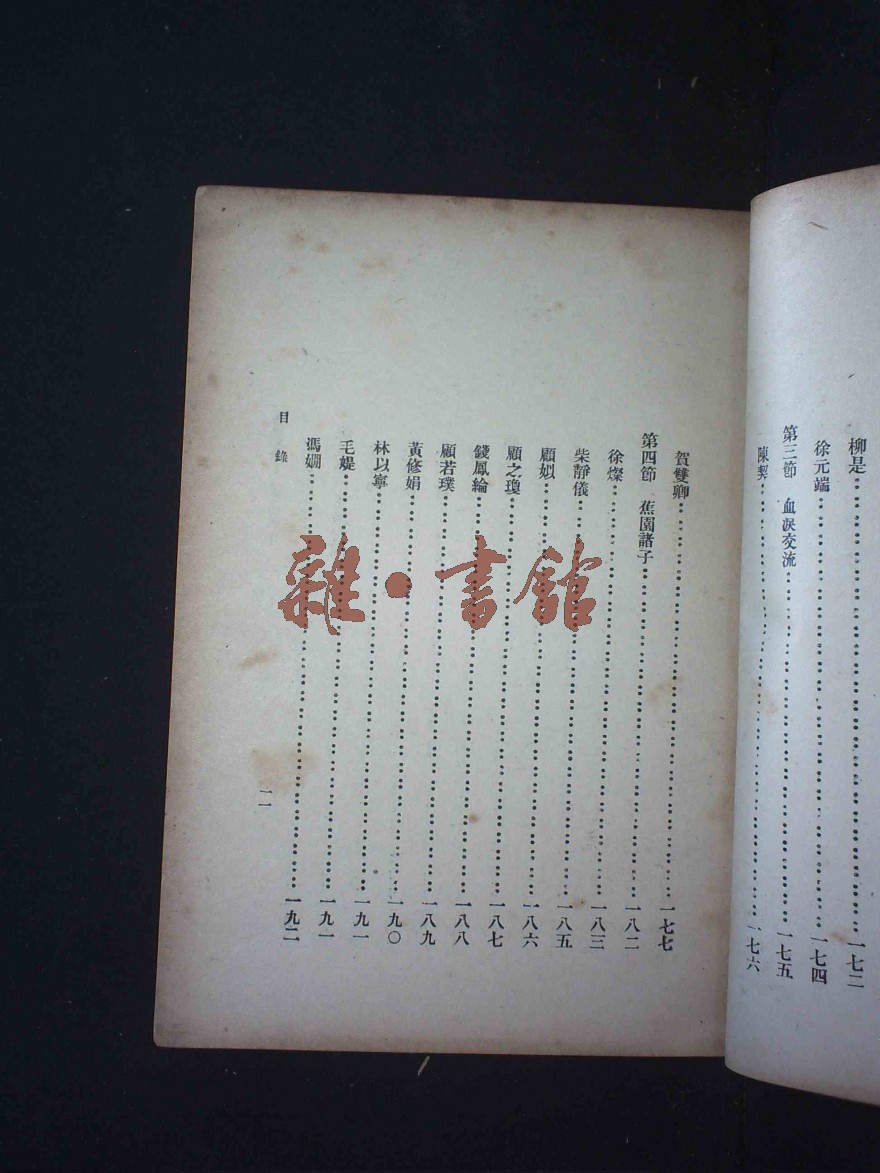 柳是……一七二
徐元端……一七四
第三節　血淚交流……一七五
陳契……一七六
賀雙卿……一七七
第四節　蕉園諸子……一八二
徐燦……一八三
柴靜儀……一八五
顧姒……一八六
顧之瓊……一八七
錢鳳綸……一八八
顧若璞……一八九
黃修娟……一九〇
林以寧……一九一
毛媞……一九一
馮嫻……一九二
目錄
一一
雜·書館